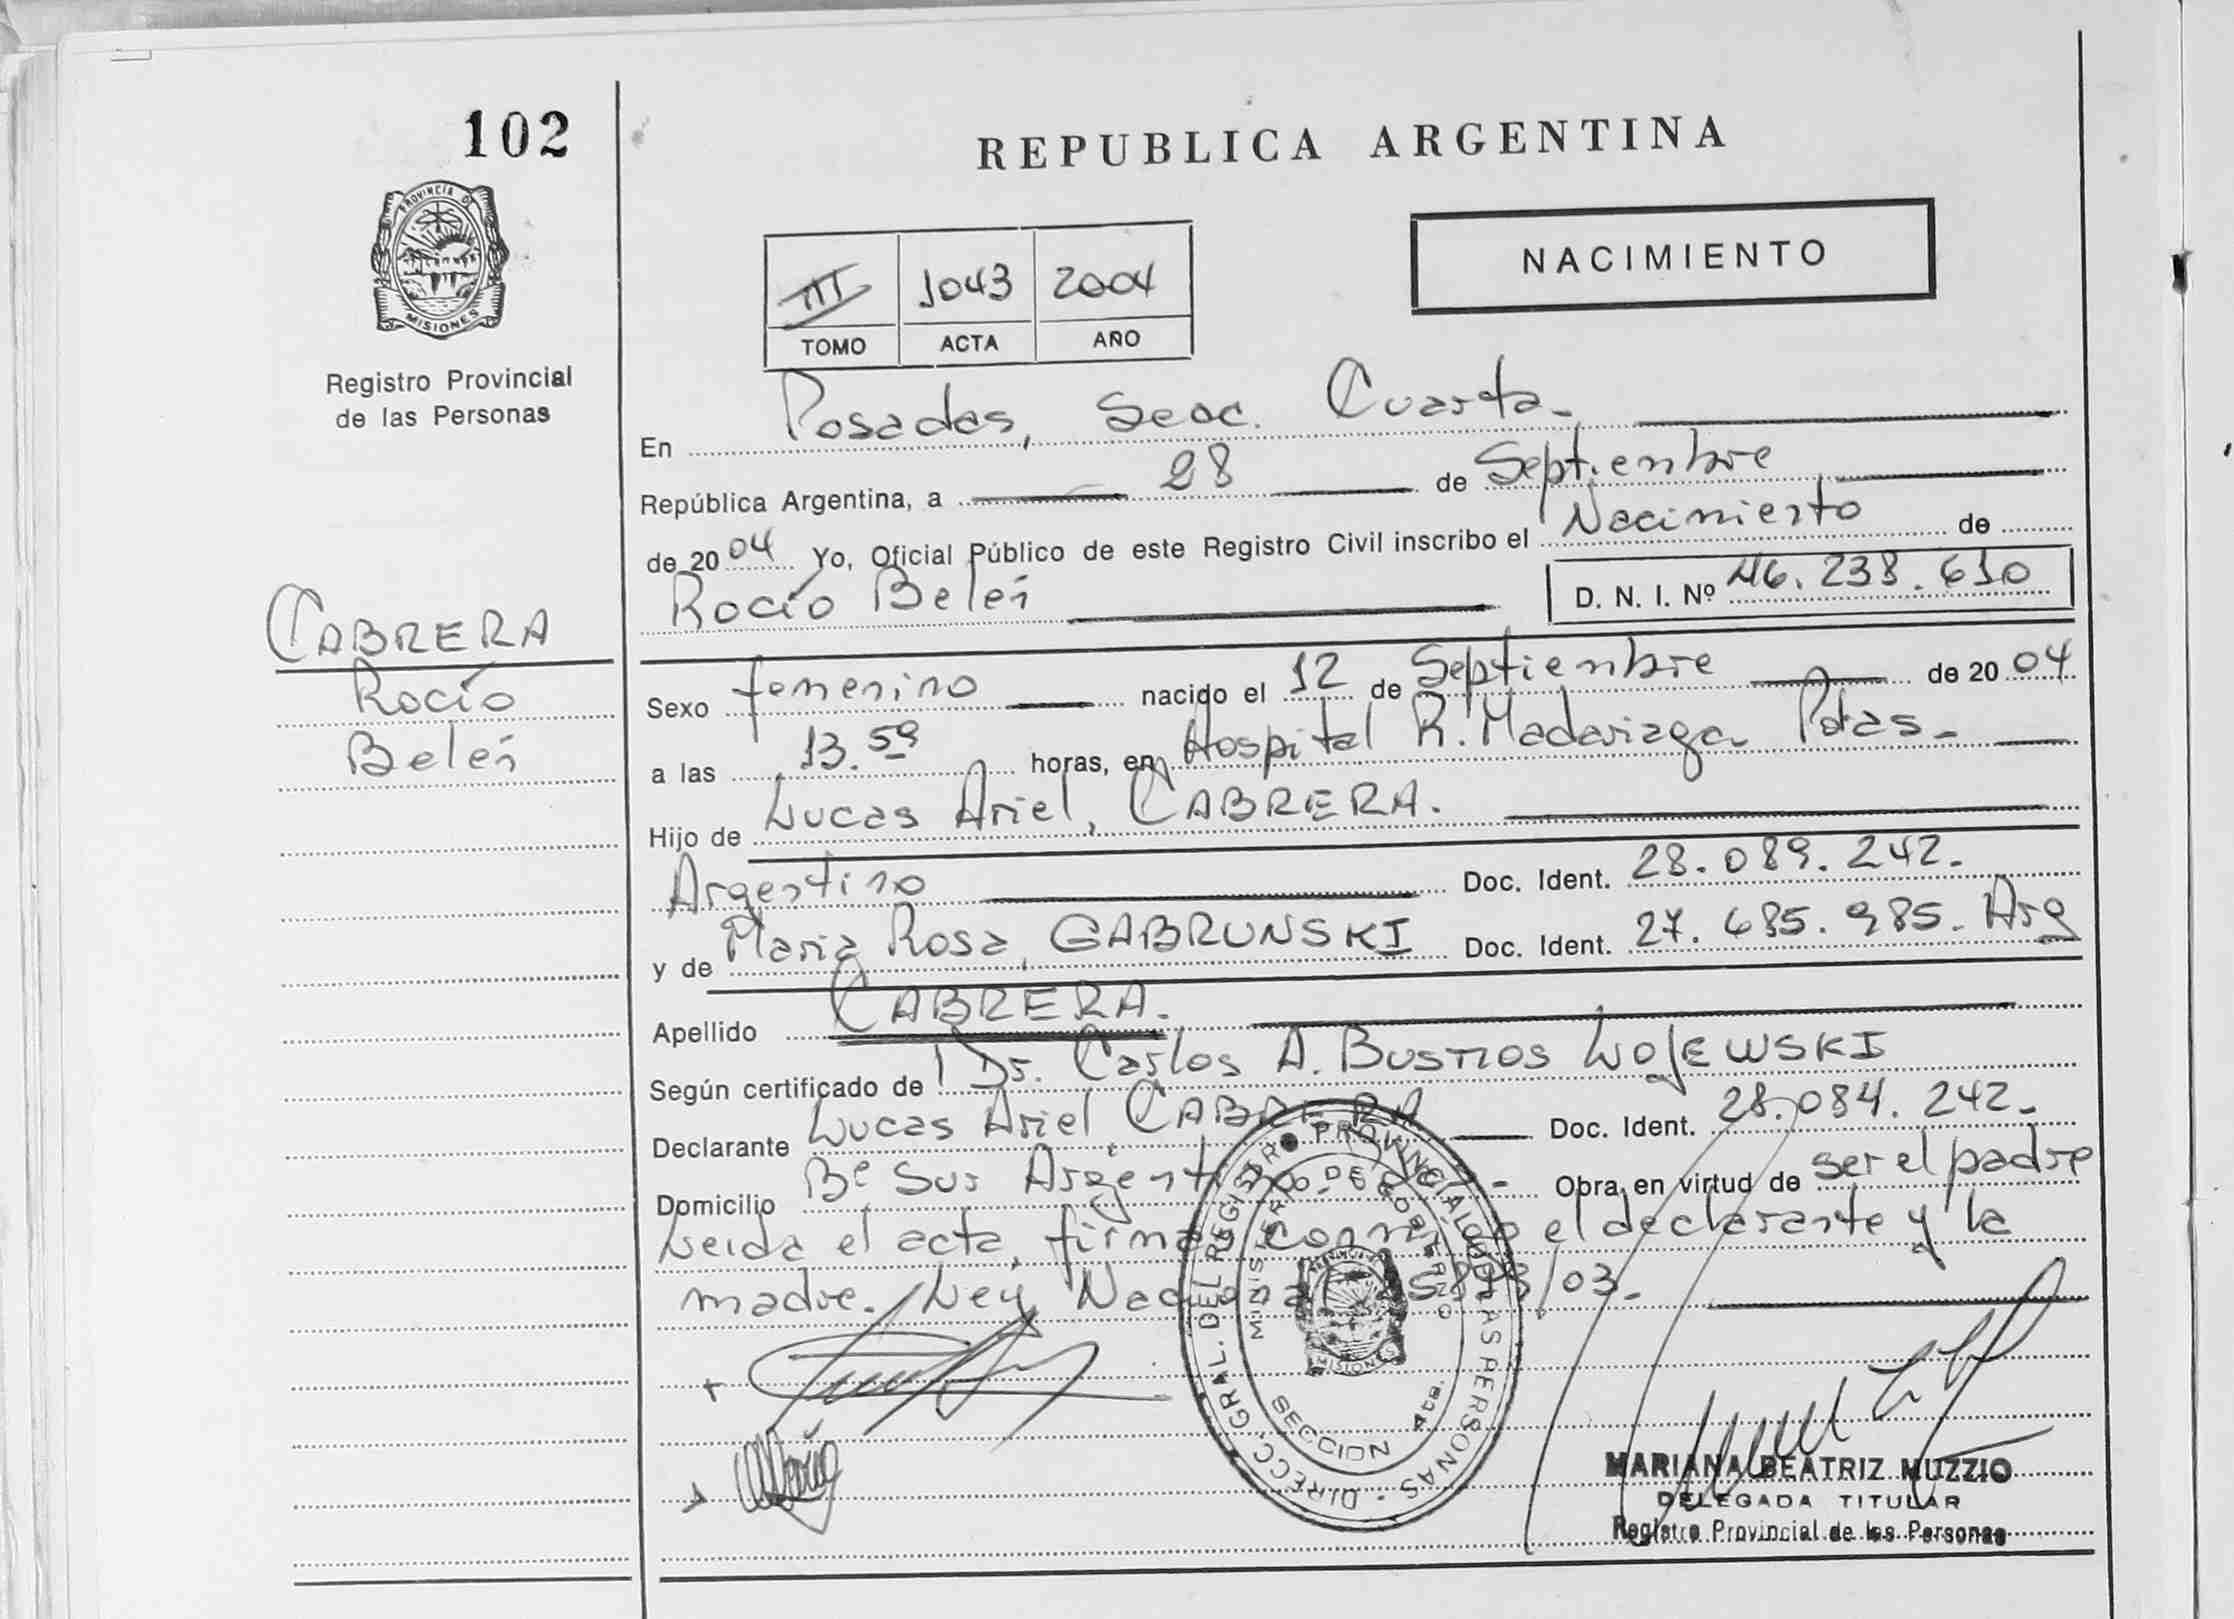 102
PROVINCIA DE
MISIONES
Registro Provincial
de las Personas
CABRERA
Rocío
Belén
REPUBLICA ARGENTINA
NACIMIENTO
III 1043 2004
TOMO ACTA AÑO
En Posadas, Secc. Cuarta.
República Argentina, a 28 de Septiembre
de 2004 Yo, Oficial Público de este Registro Civil inscribo el Nacimiento de
Rocío Belén D. N. I. Nº 46.238.610
Sexo femenino nacido el 12 de Septiembre de 2004
a las 13.59 horas, en Hospital R. Madariaga Pdas.
Hijo de Lucas Ariel, CABRERA.
Argentino Doc. Ident. 28.089.242.
y de Maria Rosa, GABRUNSKI Doc. Ident. 27.685.985. Arg
Apellido CABRERA.
Según certificado de Dr. Carlos A. BUSTIOS WOJEWSKI
Declarante Lucas Ariel CABRERA Doc. Ident. 28.084.242.
Domicilio Bº Sur Argentino Obra en virtud de ser el padre
Leida el acta, firman conmigo el declarante y la
madre. Ley Nacional /03.
DIRECC. GRAL. DEL REGISTRO PROVINCIAL DE LAS PERSONAS
MINISTERIO DE GOBIERNO
MISIONES
SECCION 4ta.
MARIANA BEATRIZ MUZZIO
DELEGADA TITULAR
Registro Provincial de las Personas